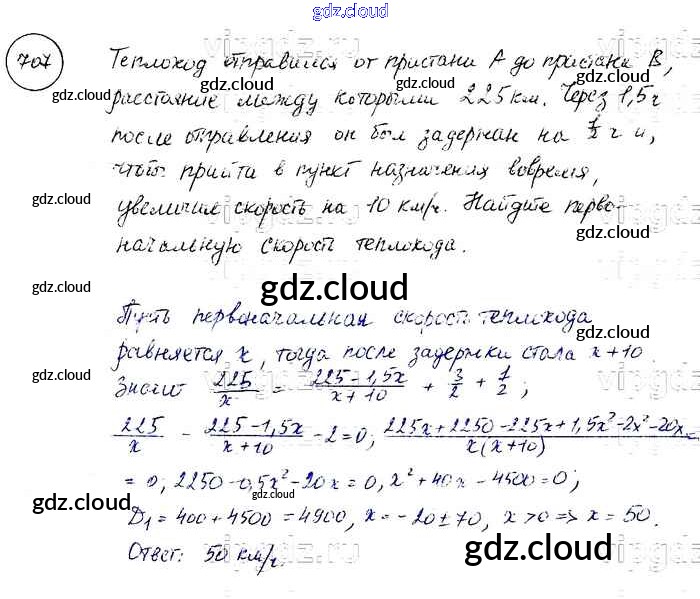 gdz.cloud
707 Теплоход отправился от пристани А до пристани В,
gdz.cloud gdz.cloud gdz.cloud
расстояние между которыми 225 км. Через 1,5 ч
после отправления он был задержан на 1/2 ч и,
чтоб прийти в пункт назначения вовремя,
gdz.cloud
увеличил скорость на 10 км/ч. Найдите перво-
gdz.cloud
начальную скорость теплохода.
gdz.cloud gdz.cloud
Пусть первоначальная скорость теплохода
равняется x, тогда после задержки стала x+10.
gdz.cloud gdz.cloud
Значит 225/x = (225-1,5x)/(x+10) + 3/2 + 1/2;
225/x - (225-1,5x)/(x+10) - 2=0; (225x+2250-225x+1,5x²-2x²-20x)/(x(x+10))
= 0; 2250-0,5x²-20x=0, x²+40x-4500=0;
gdz.cloud gdz.cloud gdz.cloud
D₁=400+4500=4900, x=-20±70, x>0=>x=50.
Ответ: 50 км/ч.
gdz.cloud